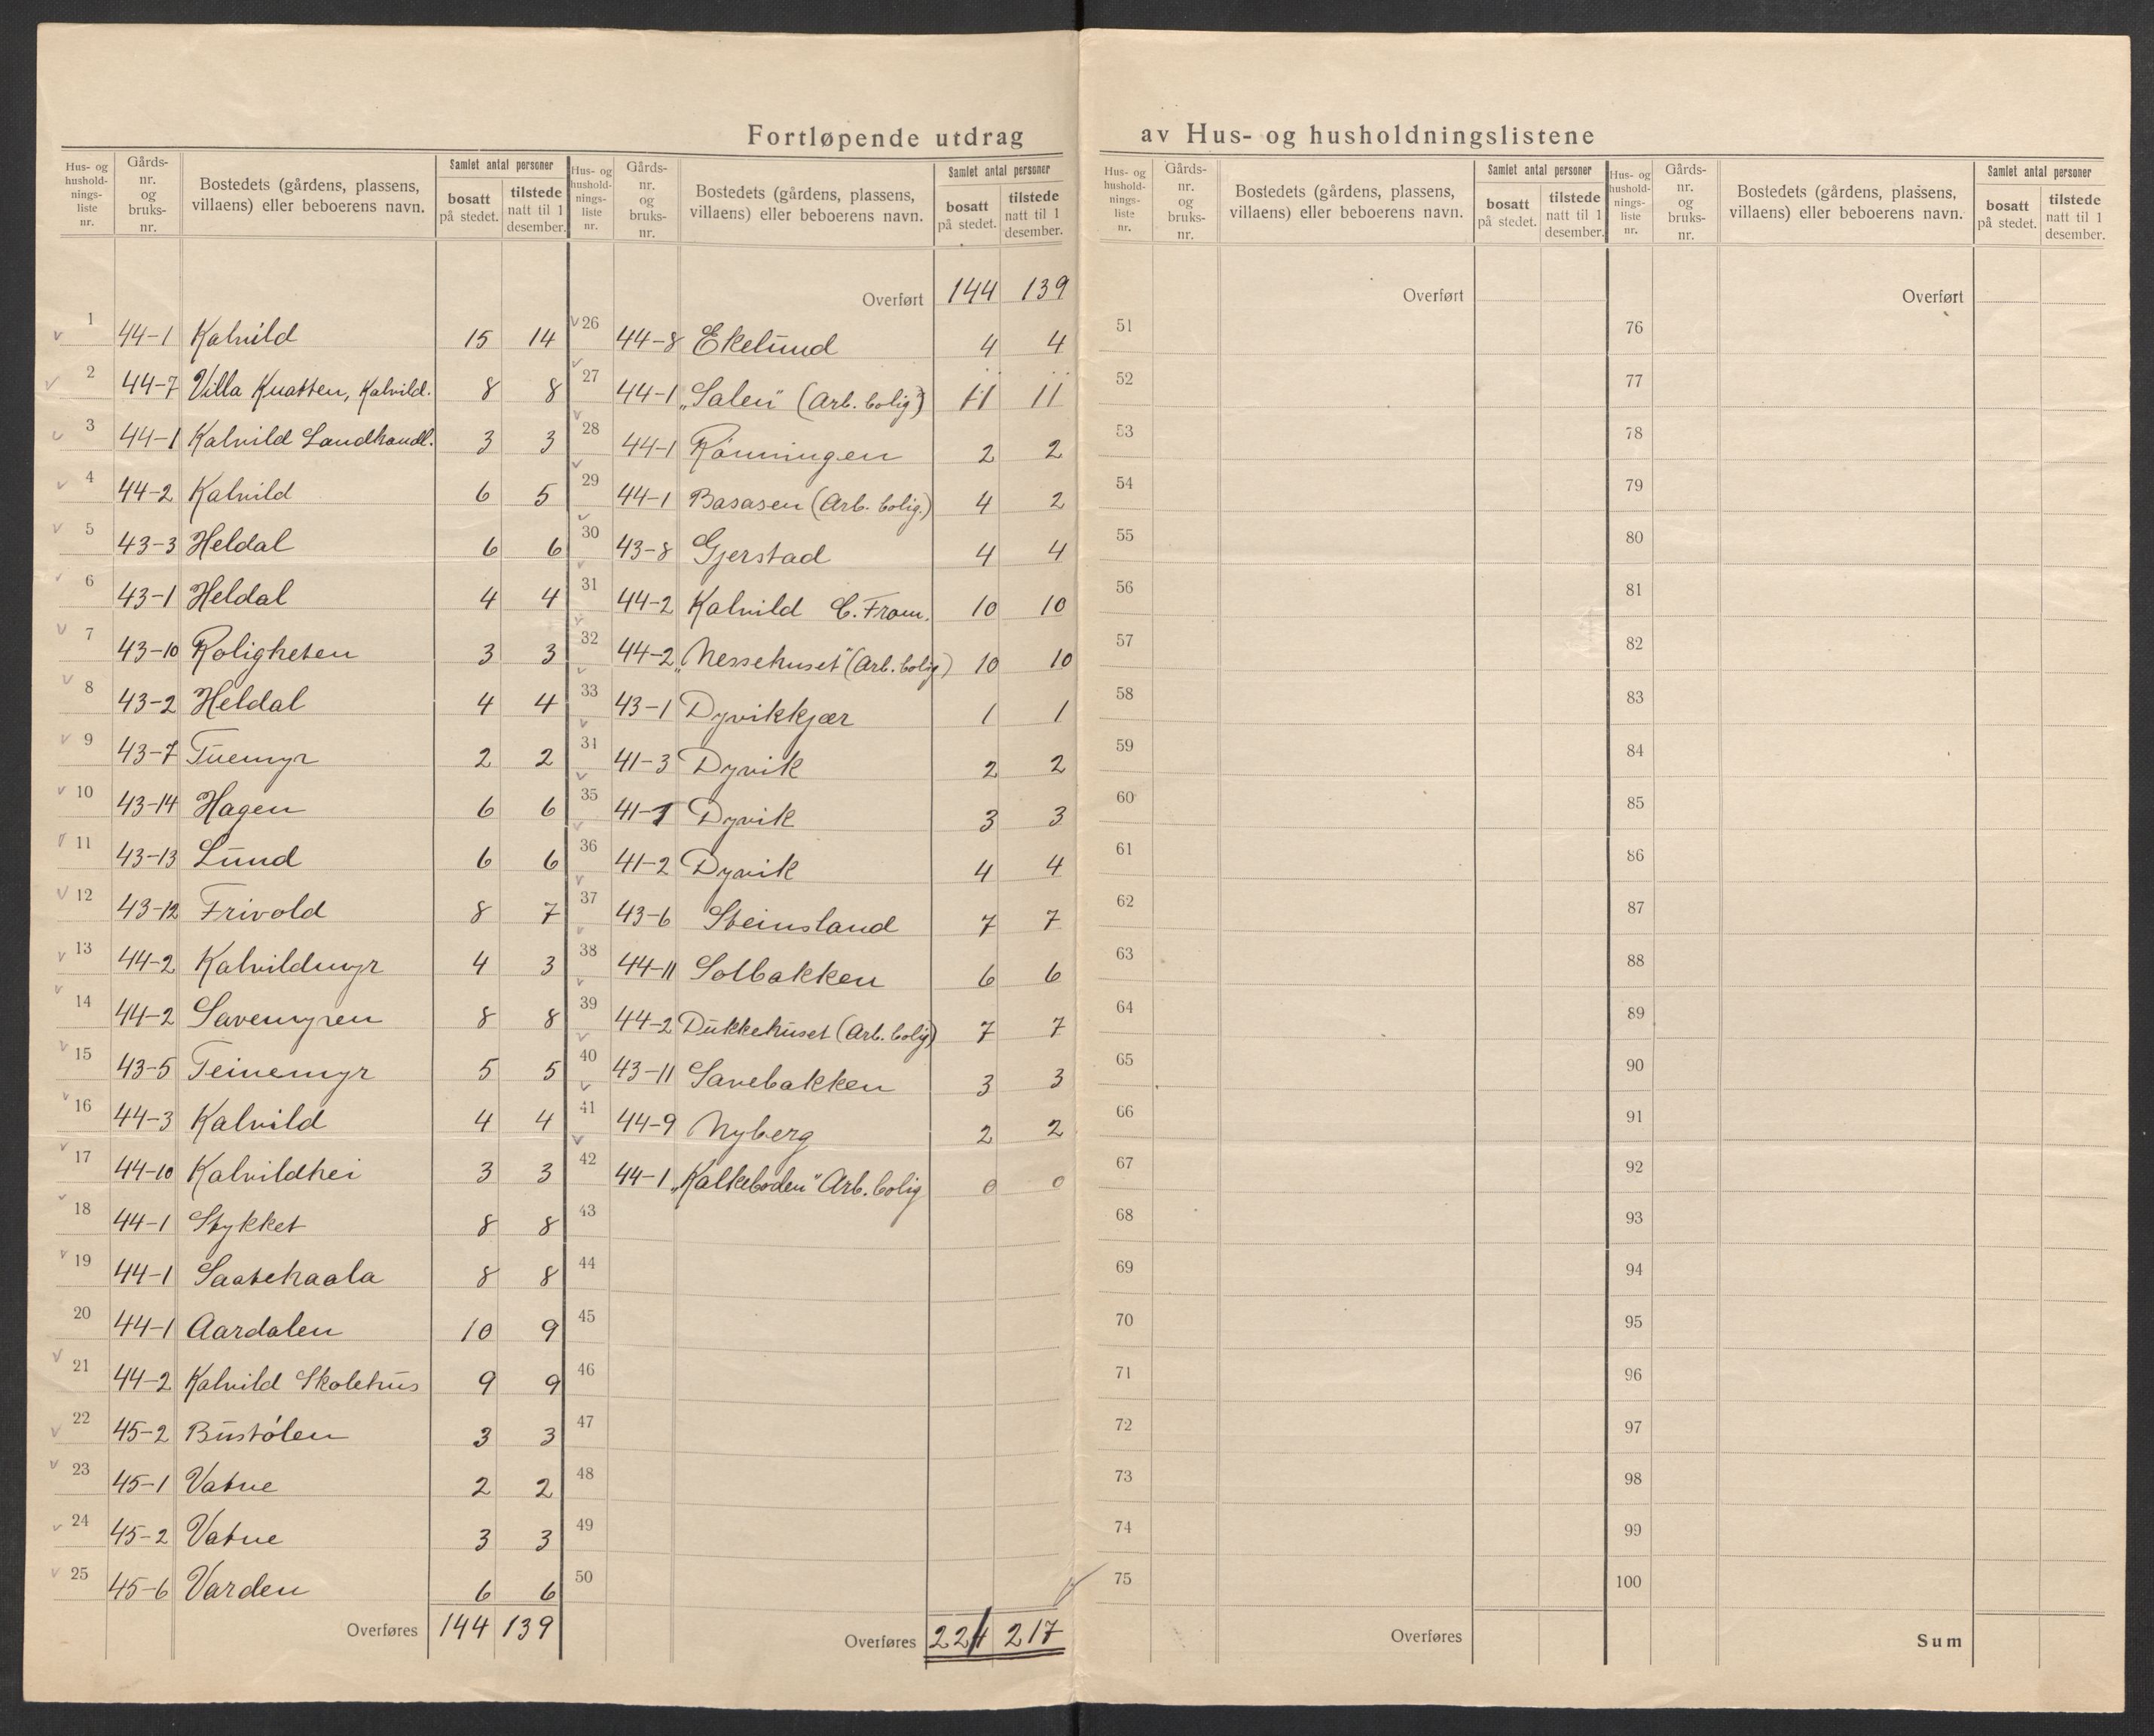 Fortløpende utdrag av Hus- og husholdningslistene
Hus- og husholdnings-liste nr. | Gårds-nr. og bruks-nr. | Bostedets (gårdens, plassens, villaens) eller beboerens navn. | Samlet antal personer | bosatt på stedet. | tilstede natt til 1 desember.
1 44-1 Kalvild 15 14
2 44-7 Villa Knatten, Kalvild. 8 8
3 44-1 Kalvild Landhandl. 3 3
4 44-2 Kalvild 6 5
5 43-3 Heldal 6 6
6 43-1 Heldal 4 4
7 43-10 Roligheten 3 3
8 43-2 Heldal 4 4
9 43-7 Tuemyr 2 2
10 43-14 Hagen 6 6
11 43-13 Lund 6 6
12 43-12 Frivold 8 7
13 44-2 Kalvildmyr 4 3
14 44-2 Savemyren 8 8
15 43-5 Teinemyr 5 5
16 44-3 Kalvild 4 4
17 44-10 Kalvildhei 3 3
18 44-1 Stykket 8 8
19 44-1 Saatehaala 8 8
20 44-1 Aardalen 10 9
21 44-2 Kalvild Skolehus 9 9
22 45-2 Bustølen 3 3
23 45-1 Vatne 2 2
24 45-2 Vatne 3 3
25 45-6 Varden 6 6
Overføres 144 139
Hus- og husholdnings-liste nr. | Gårds-nr. og bruks-nr. | Bostedets (gårdens, plassens, villaens) eller beboerens navn. | Samlet antal personer | bosatt på stedet. | tilstede natt til 1 desember.
Overført 144 139
26 44-8 Ekelund 4 4
27 44-1 „Salen" (Arb. bolig) 11 11
28 44-1 Rønningen 2 2
29 44-1 Basasen (Arb. bolig.) 4 2
30 43-8 Gjerstad 4 4
31 44-2 Kalvild C. From. 10 10
32 44-2 „Messehuset" (Arb. bolig) 10 10
33 43-1 Dyvikkjær 1 1
34 41-3 Dyvik 2 2
35 41-1 Dyvik 3 3
36 41-2 Dyvik 4 4
37 43-6 Steinsland 7 7
38 44-11 Solbakken 6 6
39 44-2 Dukkehuset (Arb. bolig) 7 7
40 43-11 Savebakken 3 3
41 44-9 Nyberg 2 2
42 44-1 „Kalkeboden" Arb. bolig 0 0
43
44
45
46
47
48
49
50
Overføres 224 217
Hus- og husholdnings-liste nr. | Gårds-nr. og bruks-nr. | Bostedets (gårdens, plassens, villaens) eller beboerens navn. | Samlet antal personer | bosatt på stedet. | tilstede natt til 1 desember.
Overført
51
52
53
54
55
56
57
58
59
60
61
62
63
64
65
66
67
68
69
70
71
72
73
74
75
Overføres
Hus- og husholdnings-liste nr. | Gårds-nr. og bruks-nr. | Bostedets (gårdens, plassens, villaens) eller beboerens navn. | Samlet antal personer | bosatt på stedet. | tilstede natt til 1 desember.
Overført
76
77
78
79
80
81
82
83
84
85
86
87
88
89
90
91
92
93
94
95
96
97
98
99
100
Sum